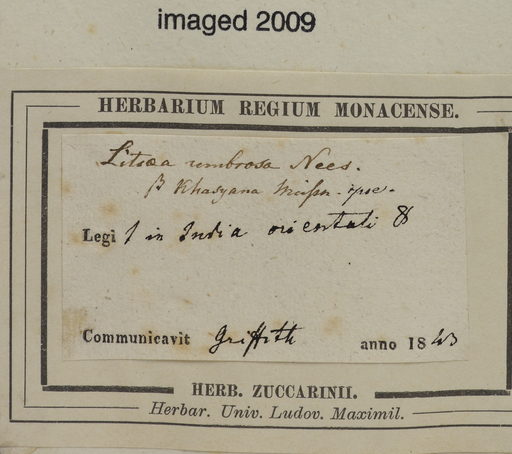 imaged 2009
HERBARIUM REGIUM MONACENSE.
Litsæa umbrosa Nees.
β Khasyana Meissn. ipse.
Legi in India orientali
Communicavit Griffith anno 1843
HERB. ZUCCARINII.
Herbar. Univ. Ludov. Maximil.